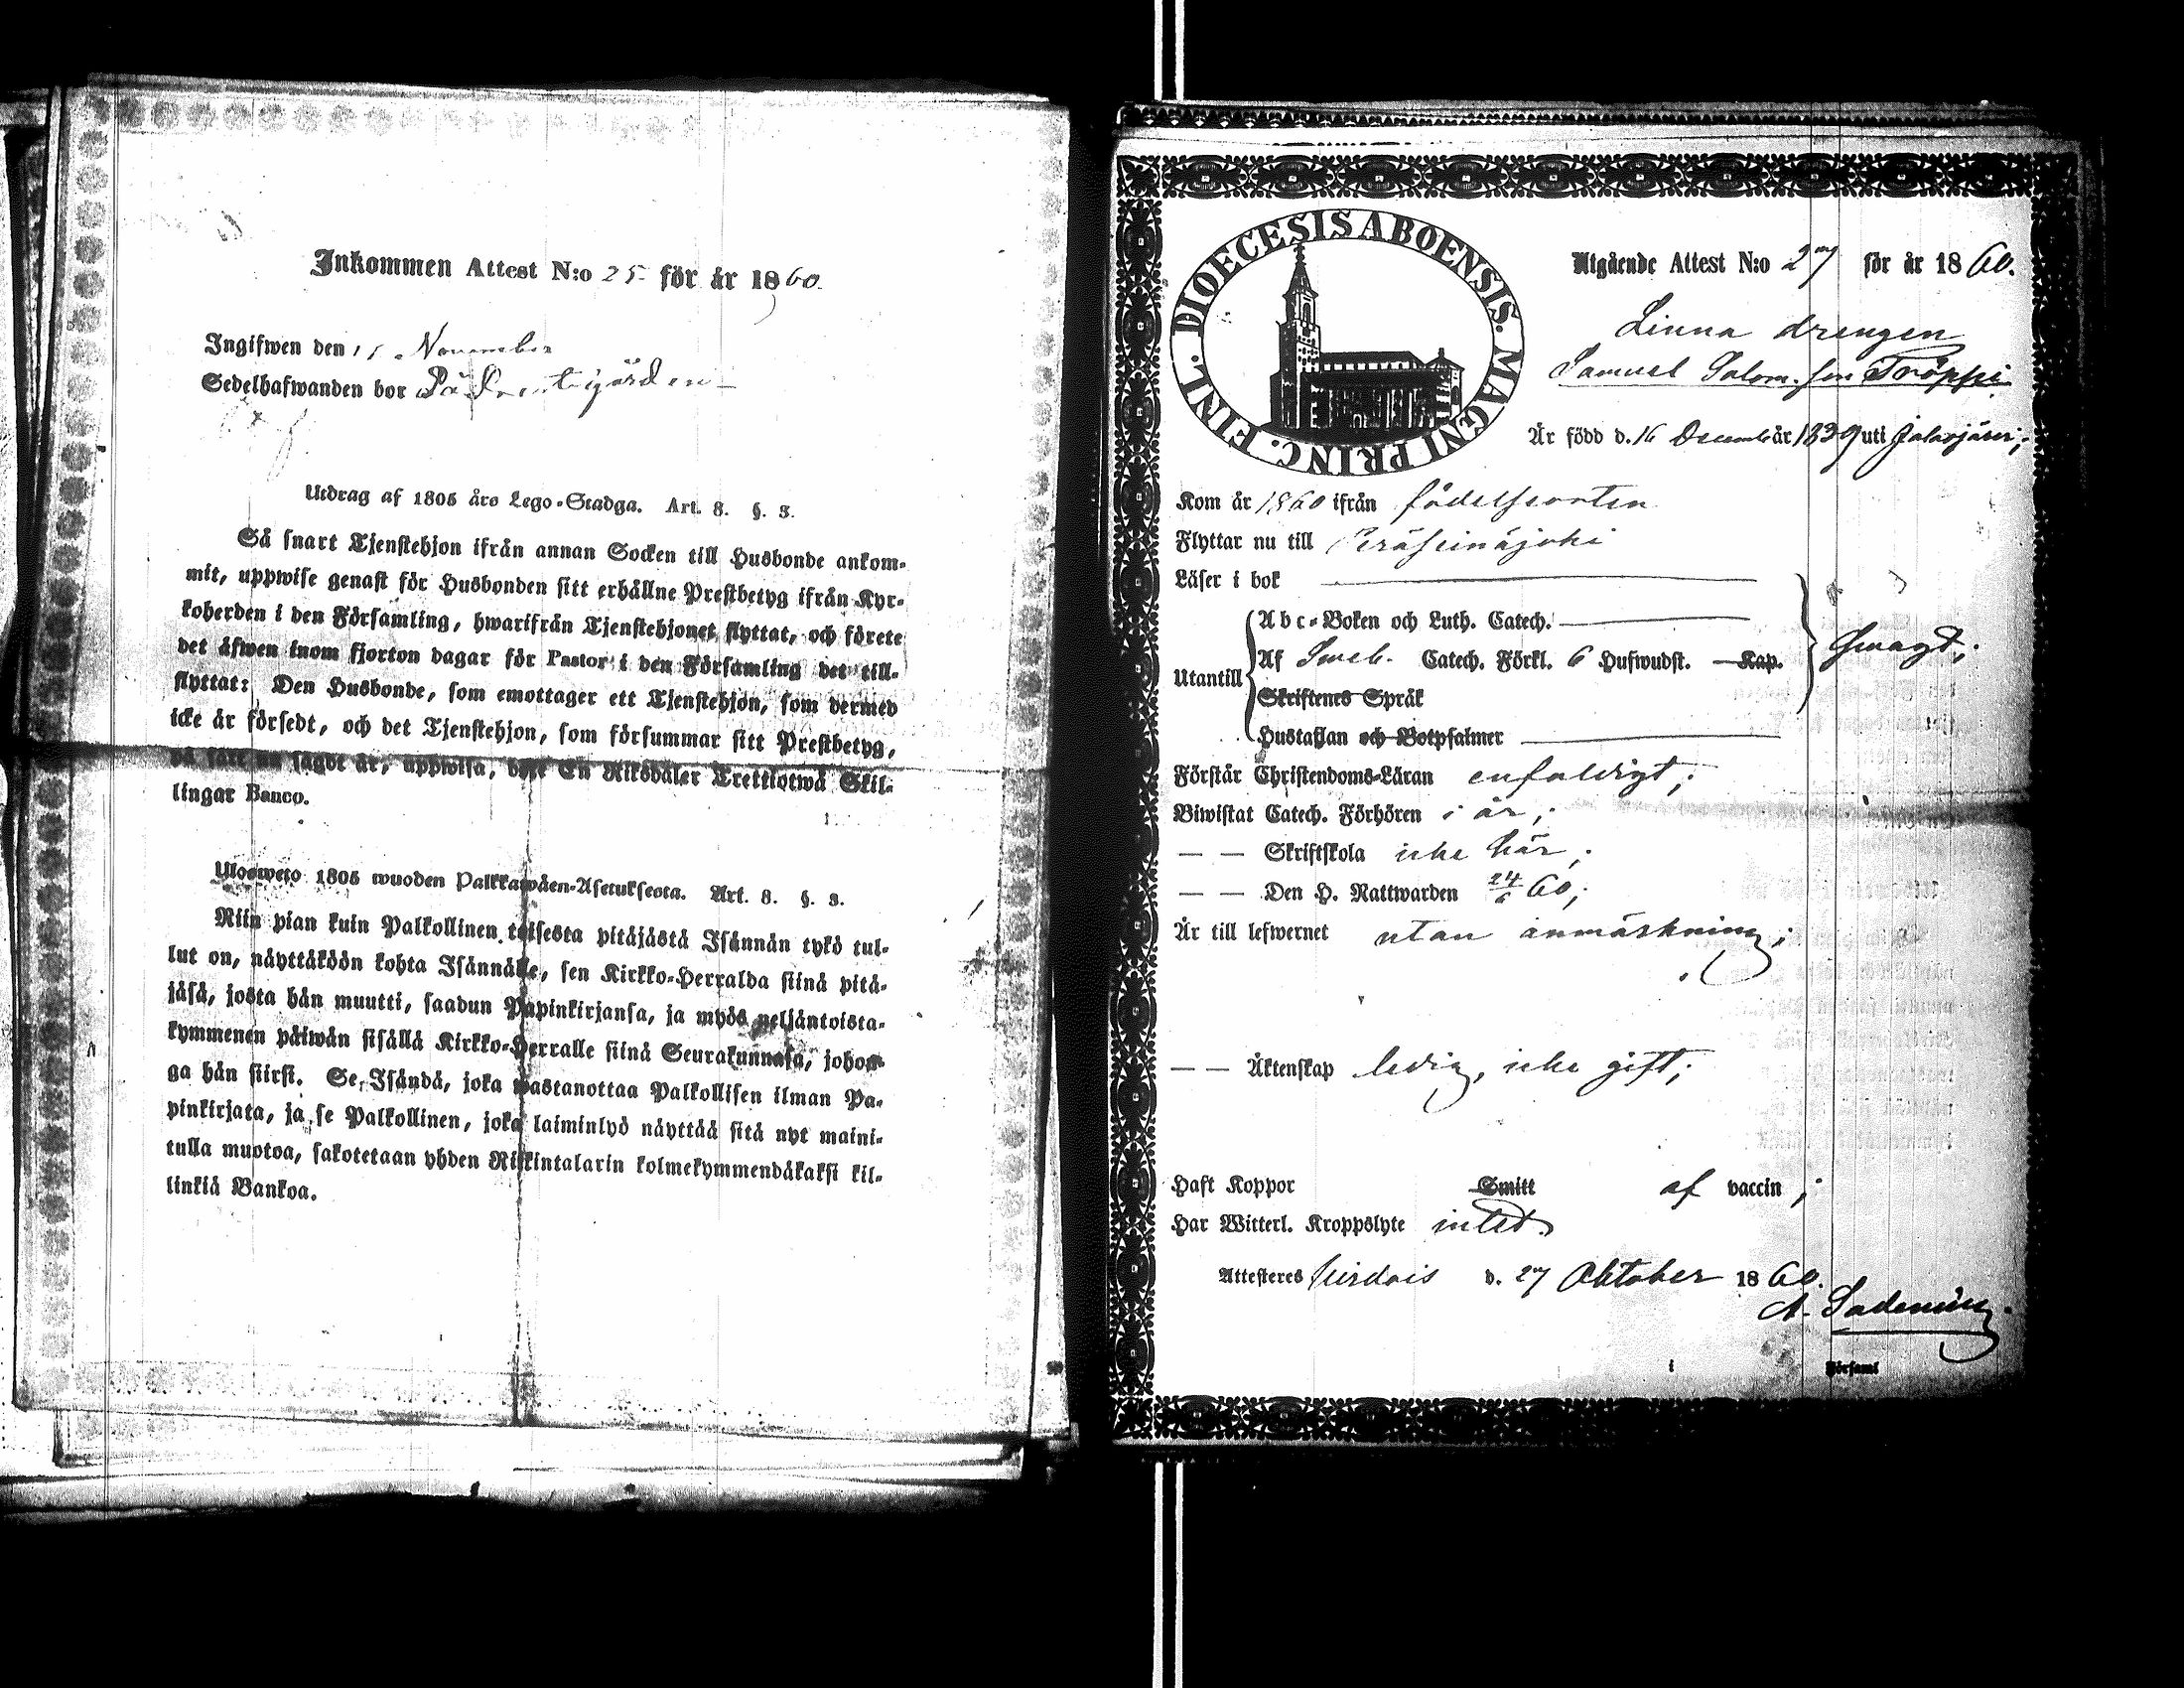 Inkommen Attest N:o 25 för år 1860.
Ingifwen den 15 November
Sedelhafwanden bor På
Utdrag af 1805 års Lego-Stadga. Art. 8. §. 3.
Så snart Tjenstehjon ifrån annan Socken till Husbonde ankom-
mit, uppwise genast för Husbonden sitt erhållne Prestbetyg ifrån Kyr-
koherden i den Församling, hwarifrån Tjenstehjonet flyttat, och förete
det åfwen inom fjorton dagar för Pastor i den Församling det till-
flyttat: Den Husbonde, som emottager ett Tjenstehjon, som dermed
icke är försedt, och det Tjenstehjon, som försummar sitt Prestbetyg,
på sätt nu sagdt är, uppwisa, bőte En Riksdaler Trettiotwå Skil-
lingar Banco.
Ulosweto 1805 wuoden Palkkawäen-Asetuksesta. Art. 8. §. 3.
Niin pian kuin Palkollinen toisesta pitäjästä Isännän tykö tul-
lut on, näyttäköön kohta Isännälle, sen Kirkko-Herralda siinä pitä-
jäsä, josta hän muutti, saadun Papinkirjansa, ja myös neljäntoista-
kymmenen päiwän sisällä Kirkko-Herralle siinä Seurakunnasa, johon-
ga hän siirsi. Se Isändä, joka wastanottaa Palkollisen ilman Pa-
pinkirjata, ja se Palkollinen, joka laiminlyö näyttää sitä nyt maini-
tulla muotoa, sakotetaan yhden Riikintalarin kolmekymmendäkaksi kil-
linkiä Bankoa.
DIOECESIS ABOENSIS. MAGNI PRINC. FINL.
Utgående Attest N:o 27 för år 1860.
Linna drengen
Samuel Salom. son Tröppi
Är född d. 16 Decemb år 1839 uti Jalasjärvi;
Kom år 1860 ifrån födelseorten
Flyttar nu till Peräseinäjoki
Läser i bok
Abc-Boken och Luth. Catech.
Utantill Af Sweb. Catech. Förkl. 6 Hufwudst. Kap. swagt;
Skriftenes Språk
Hustaflan och Botpsalmer
Förstår Christendoms-Läran enfaldigt;
Biwistat Catech. Förhören i år;
— — Skriftskola icke här;
— — Den H. Nattwarden 24/6 60;
Är till lefwernet utan anmärkning;
— — Äktenskap ledig, icke gift;
Haft Koppor Smitt af vaccin;
Har Witterl. Kroppslyte intet.
Attesteres Virdois d. 27 Oktober 1860.
A.
i Församl